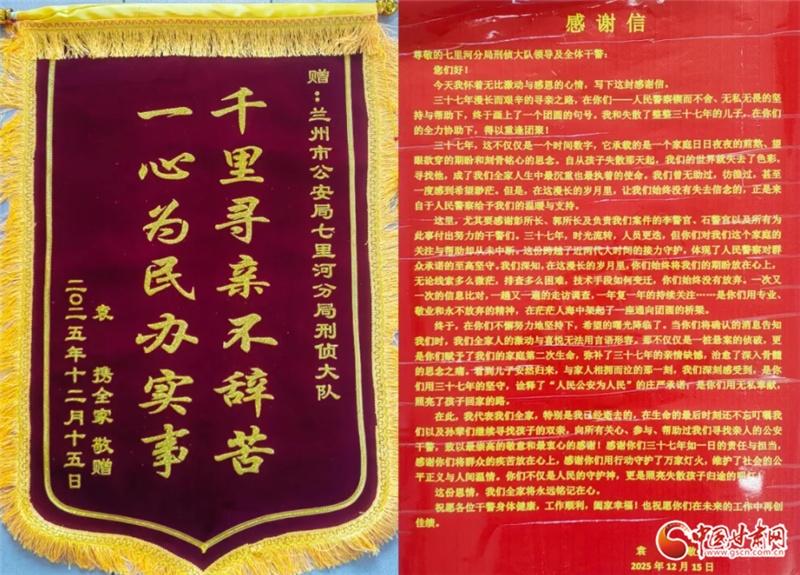 赠：兰州市公安局七里河分局刑侦大队
千里寻亲不辞苦
一心为民办实事
袁 携全家 敬赠
二〇二五年十二月十五日
感谢信
尊敬的七里河分局刑侦大队领导及全体干警：
您们好！
今天我怀着无比激动与感恩的心情，写下这封感谢信。
三十七年漫长而艰辛的寻亲之路，在你们——人民警察锲而不舍、无私无畏的坚
持与帮助下，终于画上了一个团圆的句号。我和失散了整整三十七年的儿子，在你们
的全力协助下，得以重逢团聚！
三十七年，这不仅仅是一个时间数字，它承载的是一个家庭日日夜夜的煎熬、望
眼欲穿的期盼和刻骨铭心的思念。自从孩子失散那天起，我们的世界就失去了色彩，
寻找他，成了我们全家人生中最沉重也最执着的使命。我们曾无助过，彷徨过，甚至
一度感到希望渺茫。但是，在这漫长的岁月里，让我们始终没有失去信念的，正是来
自于人民警察给予我们的温暖与支持。
这里，尤其要感谢彭所长、郭所长及负责我们案件的李警官、石警官以及所有为
此事付出努力的干警们，三十七年，时光流转，人员更迭，但你们对我们这个家庭的
关注与帮助却从未中断，这份跨越了近两代大时间的接力守护，体现了人民警察对群
众承诺的至高坚守。我们深知，在这漫长的岁月里，你们始终将我们的期盼放在心上，
无论线索多么微茫，排查多么困难，技术手段如何变迁，你们始终没有放弃。一次又
一次的信息比对，一趟又一遍的走访调查，一年复一年的持续关注……是你们用专业、
敬业和永不放弃的精神，在茫茫人海中架起了一座通向团圆的桥梁。
终于，在你们不懈努力地坚持下，希望的曙光降临了。当你们将确认的消息告知
我们时，我们全家人的激动与喜悦无法用言语形容。那不仅仅是一桩悬案的侦破，更
是你们赋予了我们的家庭第二次生命，弥补了三十七年的亲情缺憾，治愈了深入骨髓
的思念之痛。看到儿子安然归来，与家人相拥而泣的那一刻，我们深刻感受到，是你
们用三十七年的坚守，诠释了“人民公安为人民”的庄严承诺，是你们用无私奉献，
照亮了孩子回家的路。
在此，我代表我们全家，特别是我已经逝去的，在生命的最后时刻还不忘叮嘱我
们以及孙辈们继续寻找孩子的双亲，向所有关心、参与、帮助过我们寻找亲人的公安
干警，致以最崇高的敬意和最衷心的感谢！感谢你们三十七年如一日的责任与担当，
感谢你们将群众的疾苦放在心上，感谢你们用行动守护了万家灯火，维护了社会的公
平正义与人间温情。你们不仅是人民的守护神，更是照亮失散孩子归途的
这份恩情，我们全家将永远铭记在心。
祝愿各位干警身体健康，工作顺利，阖家幸福！也祝愿你们在未来的工作中再创
佳绩。
袁
2025年12月15日
中国甘肃网
www.gscn.com.cn